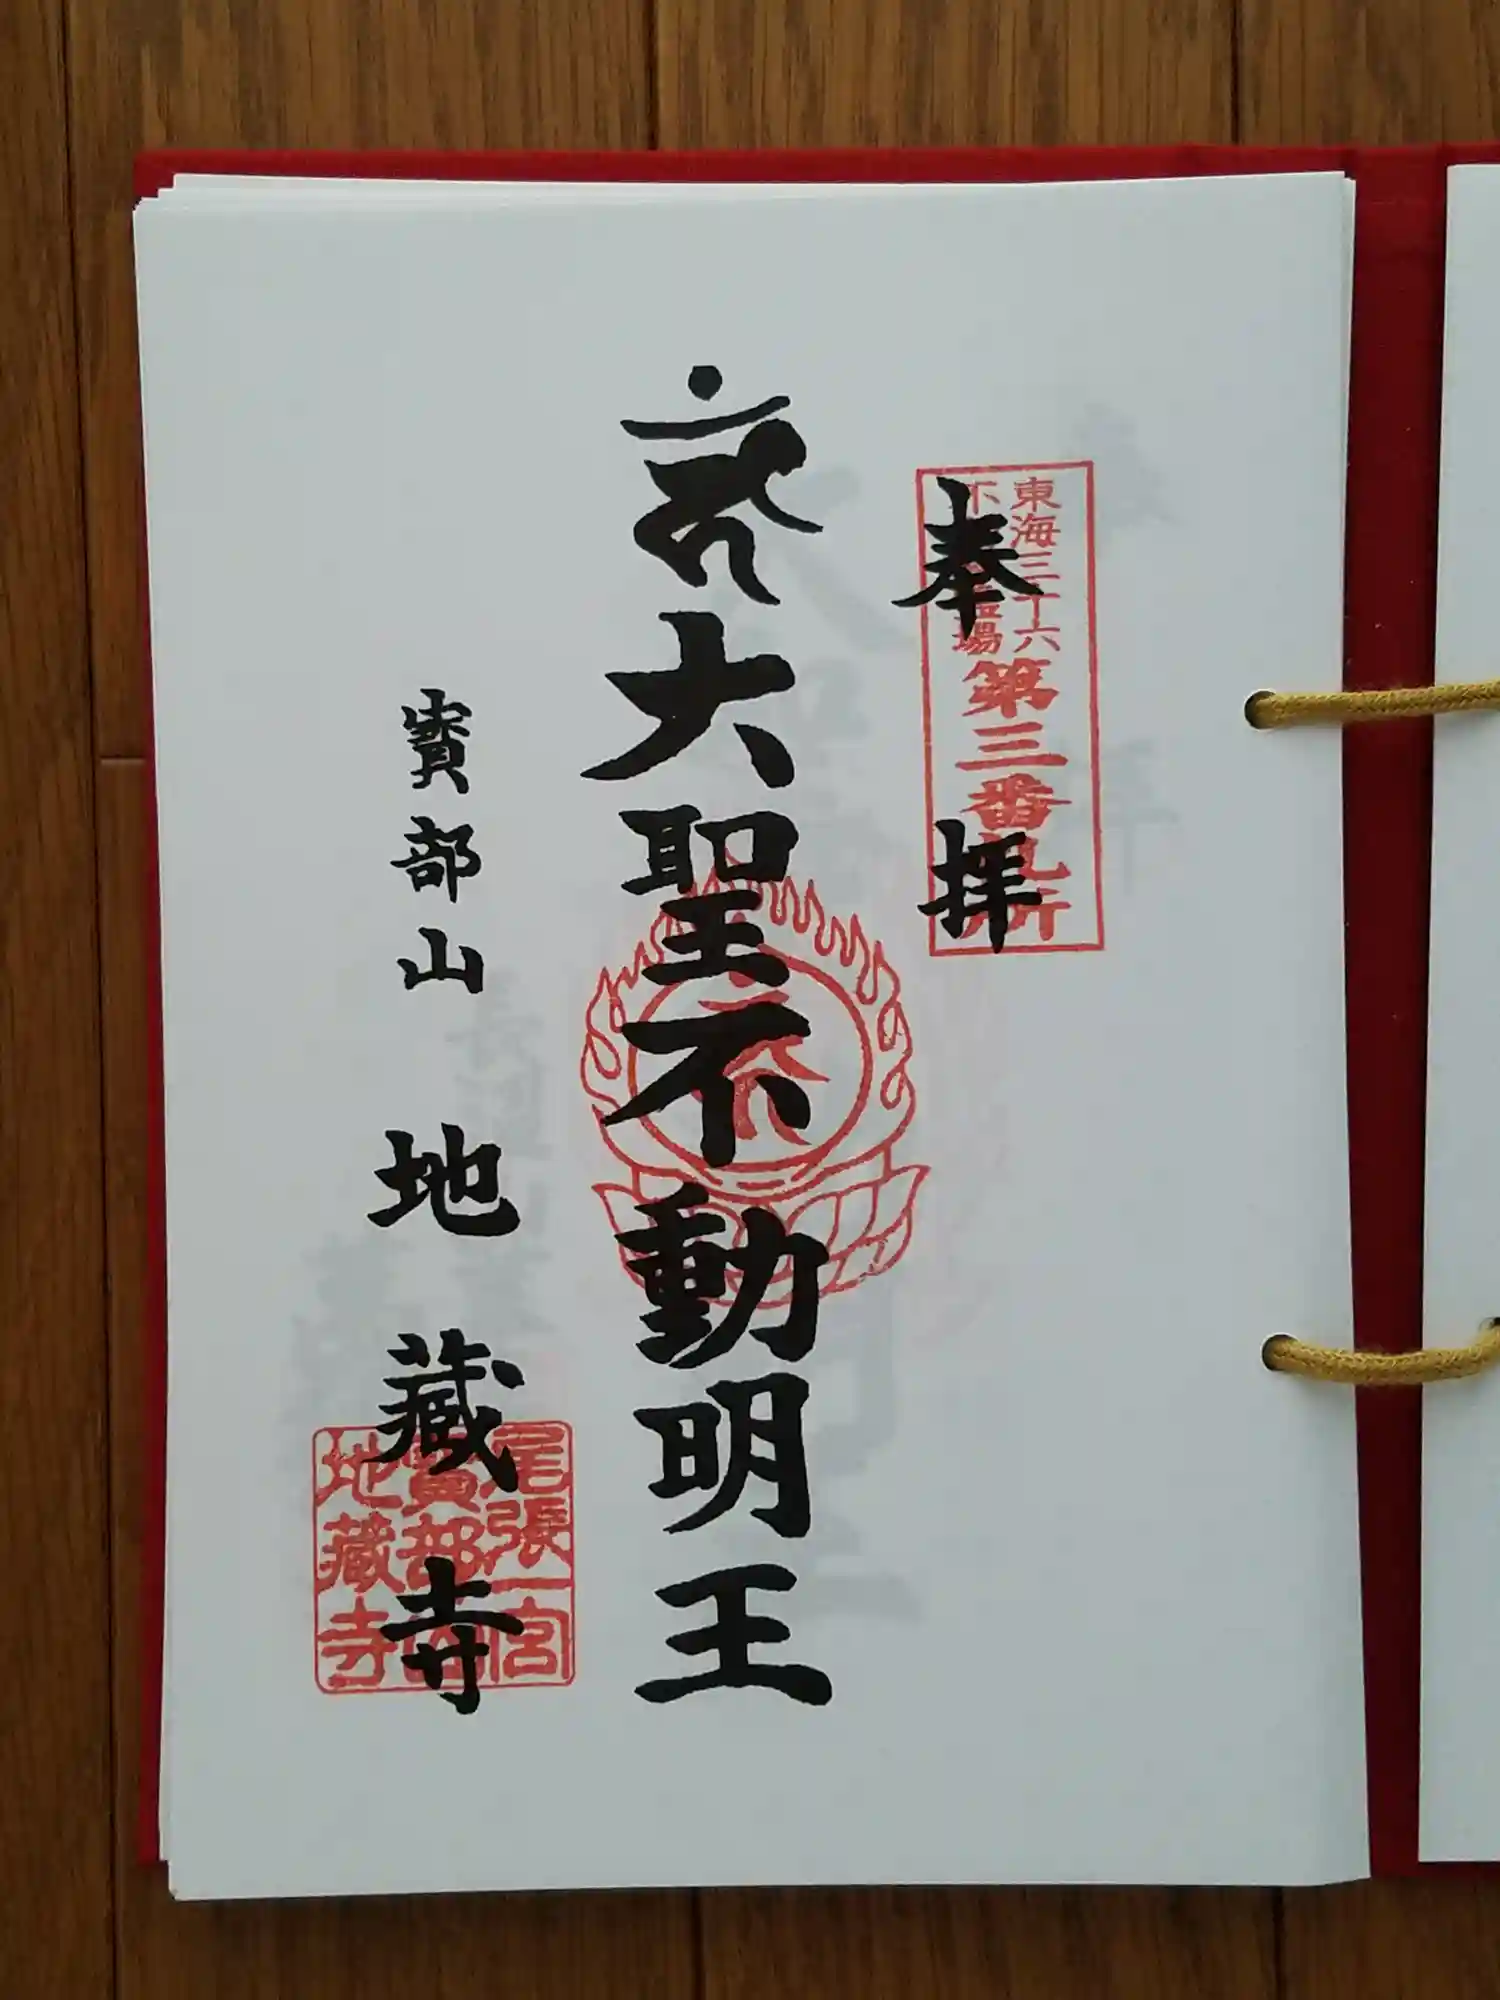 奉拝
東海三十六
不動霊場
第三番札所
大聖不動明王
寳部山 地藏寺
尾張一宮
寳部山
地藏寺